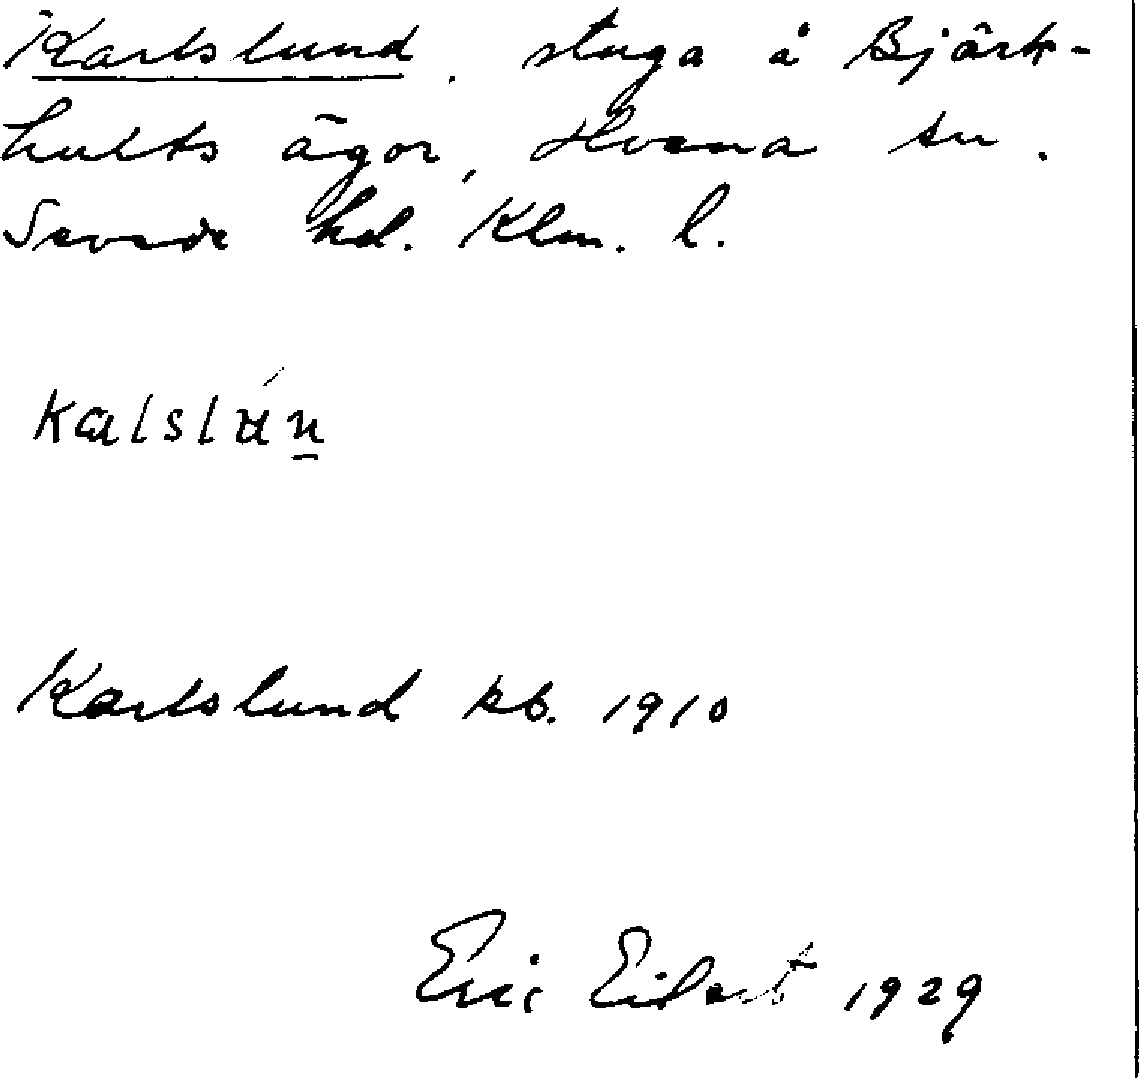 Karlslund, stuga å Björk-
hults ägor, Hvena sn.
Sevede hd. Klm. l.
Kalslún
Karlslund kb. 1910
Eric Eilert 1929